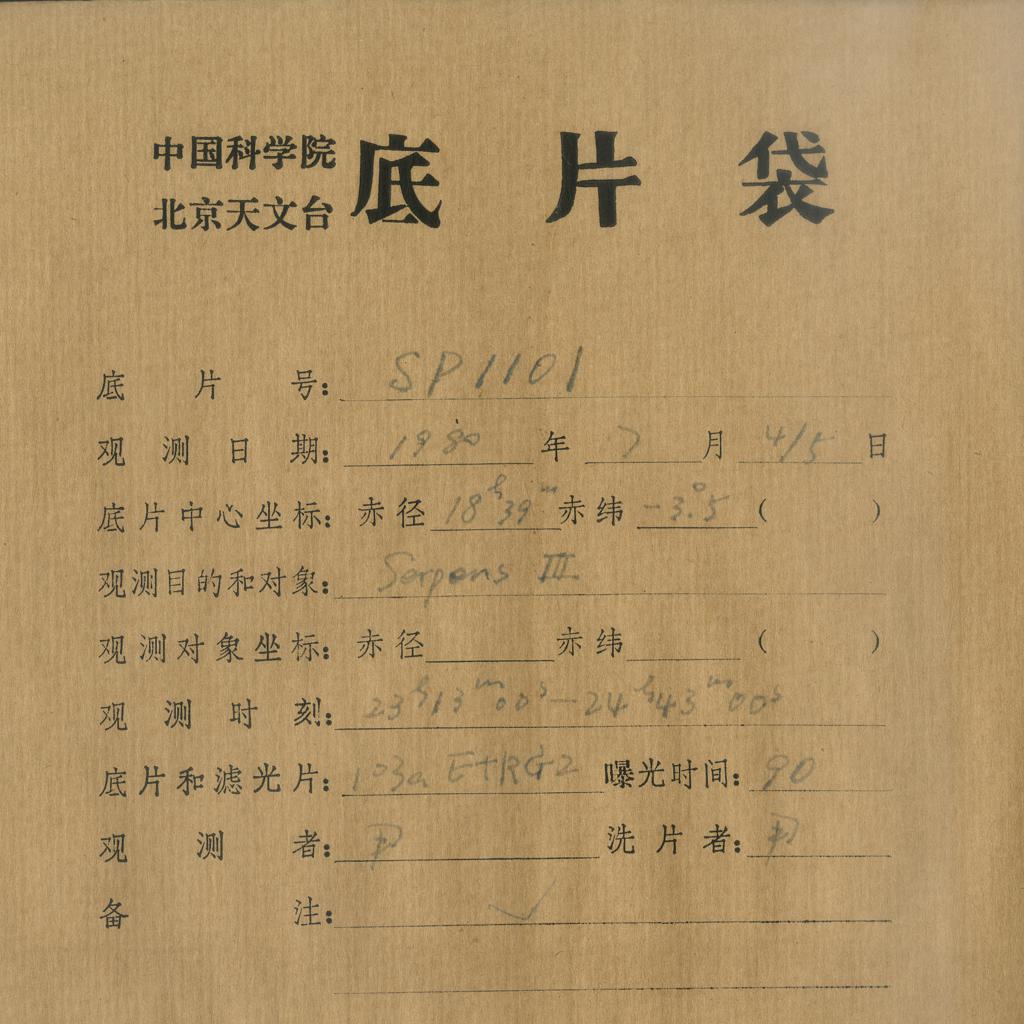 中国科学院
北京天文台 底片袋
底片号: SP1101
观测日期: 1980 年 7 月 4/5 日
底片中心坐标: 赤径 18h39m 赤纬 -3°.5 ( )
观测目的和对象: Serpens III
观测对象坐标: 赤径 赤纬 ( )
观测时刻: 23h13m00s—24h43m00s
底片和滤光片: 103aE+RG2 曝光时间: 90
观测者: 
洗片者: 
备注: ✓